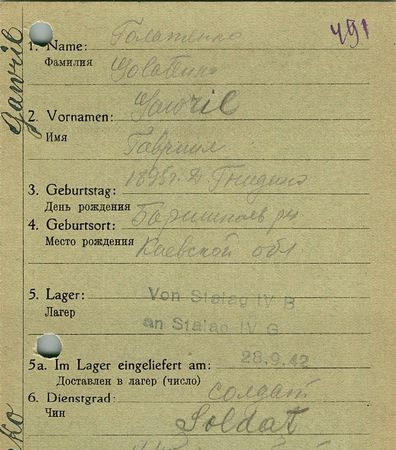 491
1. Name: Голатенко
Фамилия
Golatenko
2. Vornamen: Gawril
Имя
Гавриил
1895г. д. Гнидено
3. Geburtstag:
День рождения
4. Geburtsort: Баришполь
Место рождения
Киевской обл
5. Lager: Von Stalag IV B
Лагер
an Stalag IV G
5a. Im Lager eingeliefert am: 28.9.42
Доставлен в лагер (число)
6. Dienstgrad: солдат
Чин
Soldat
Gawril